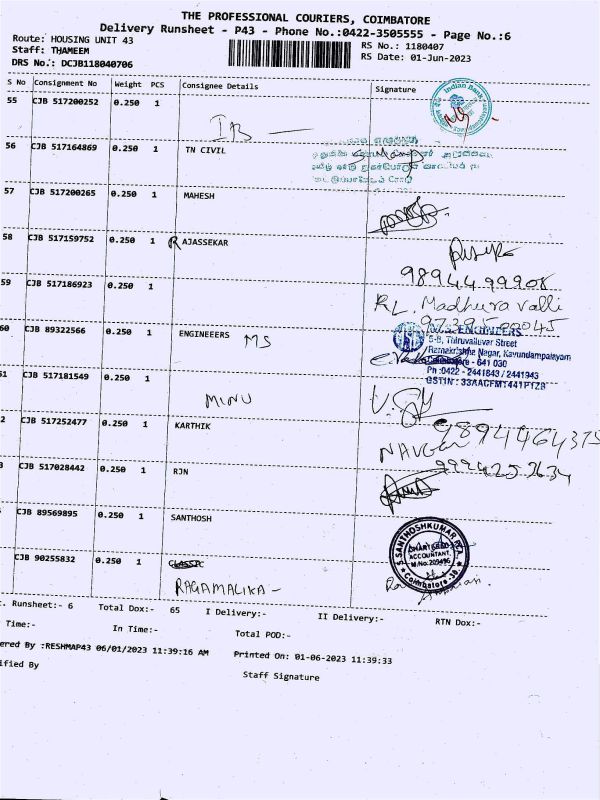 THE PROFESSIONAL COURIERS, COIMBATORE
Delivery Runsheet - P43 - Phone No.:0422-3505555 - Page No.:6
Route: HOUSING UNIT 43
RS No.: 1180407
Staff: THAMEEM
RS Date: 01-Jun-2023
DRS No.: DCJB118040706
S No Consignment No Weight PCS Consignee Details Signature
Indian Bank
55 CJB 517200252 0.250 1
IB
56 CJB 517164869 0.250 1 TN CIVIL
57 CJB 517200265 0.250 1 MAHESH
58 CJB 517159752 0.250 1 RAJASSEKAR
9894499908
59 CJB 517186923 0.250 1
RL. Madhura valli
60 CJB 89322566 0.250 1 ENGINEEERS MS
M.S. ENGINEERS
5-B, Thiruvalluvar Street
Ramakrishna Nagar, Kavundampalayam
Coimbatore - 641 030
Ph :0422 - 2441843 / 2441943
GSTIN : 33AACFM1441P1ZB
61 CJB 517181549 0.250 1
MINU
2 CJB 517252477 0.250 1 KARTHIK
9894464375
NAVEEN
9994252634
3 CJB 517028442 0.250 1 RJN
CJB 89569895 0.250 1 SANTHOSH
S.SANTHOSHKUMAR
CHARTERED
ACCOUNTANT
Coimbatore
CJB 90255832 0.250 1 CLASSIC
RAGAMALIKA -
. Runsheet:- 6 Total Dox:- 65 I Delivery:- II Delivery:- RTN Dox:-
Time:- In Time:- Total POD:-
ered By :RESHMAP43 06/01/2023 11:39:16 AM Printed On: 01-06-2023 11:39:33
ified By Staff Signature